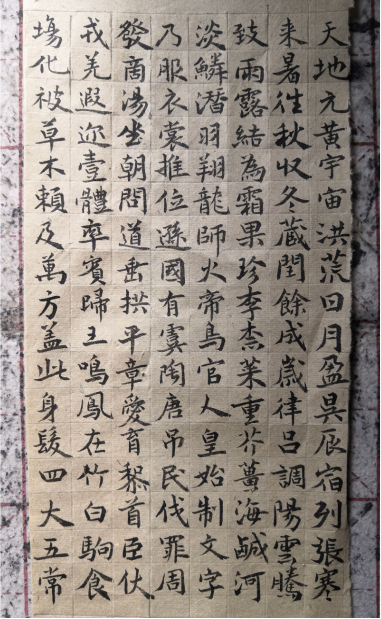 天地元黃宇宙洪荒日月盈昃辰宿列張寒
来暑往秋収冬蔵閏餘成歲律呂調陽雲騰
致雨露結為霜果珍李柰菜重芥薑海鹹河
淡鱗潛羽翔龍師火帝鳥官人皇始制文字
乃服衣裳推位遜國有虞陶唐吊民伐罪周
發商湯坐朝問道垂拱平章愛育黎首臣伏
戎羌遐迩壹體率賓歸王鳴鳳在竹白駒食
塲化被草木賴及萬方盖此身髮四大五常